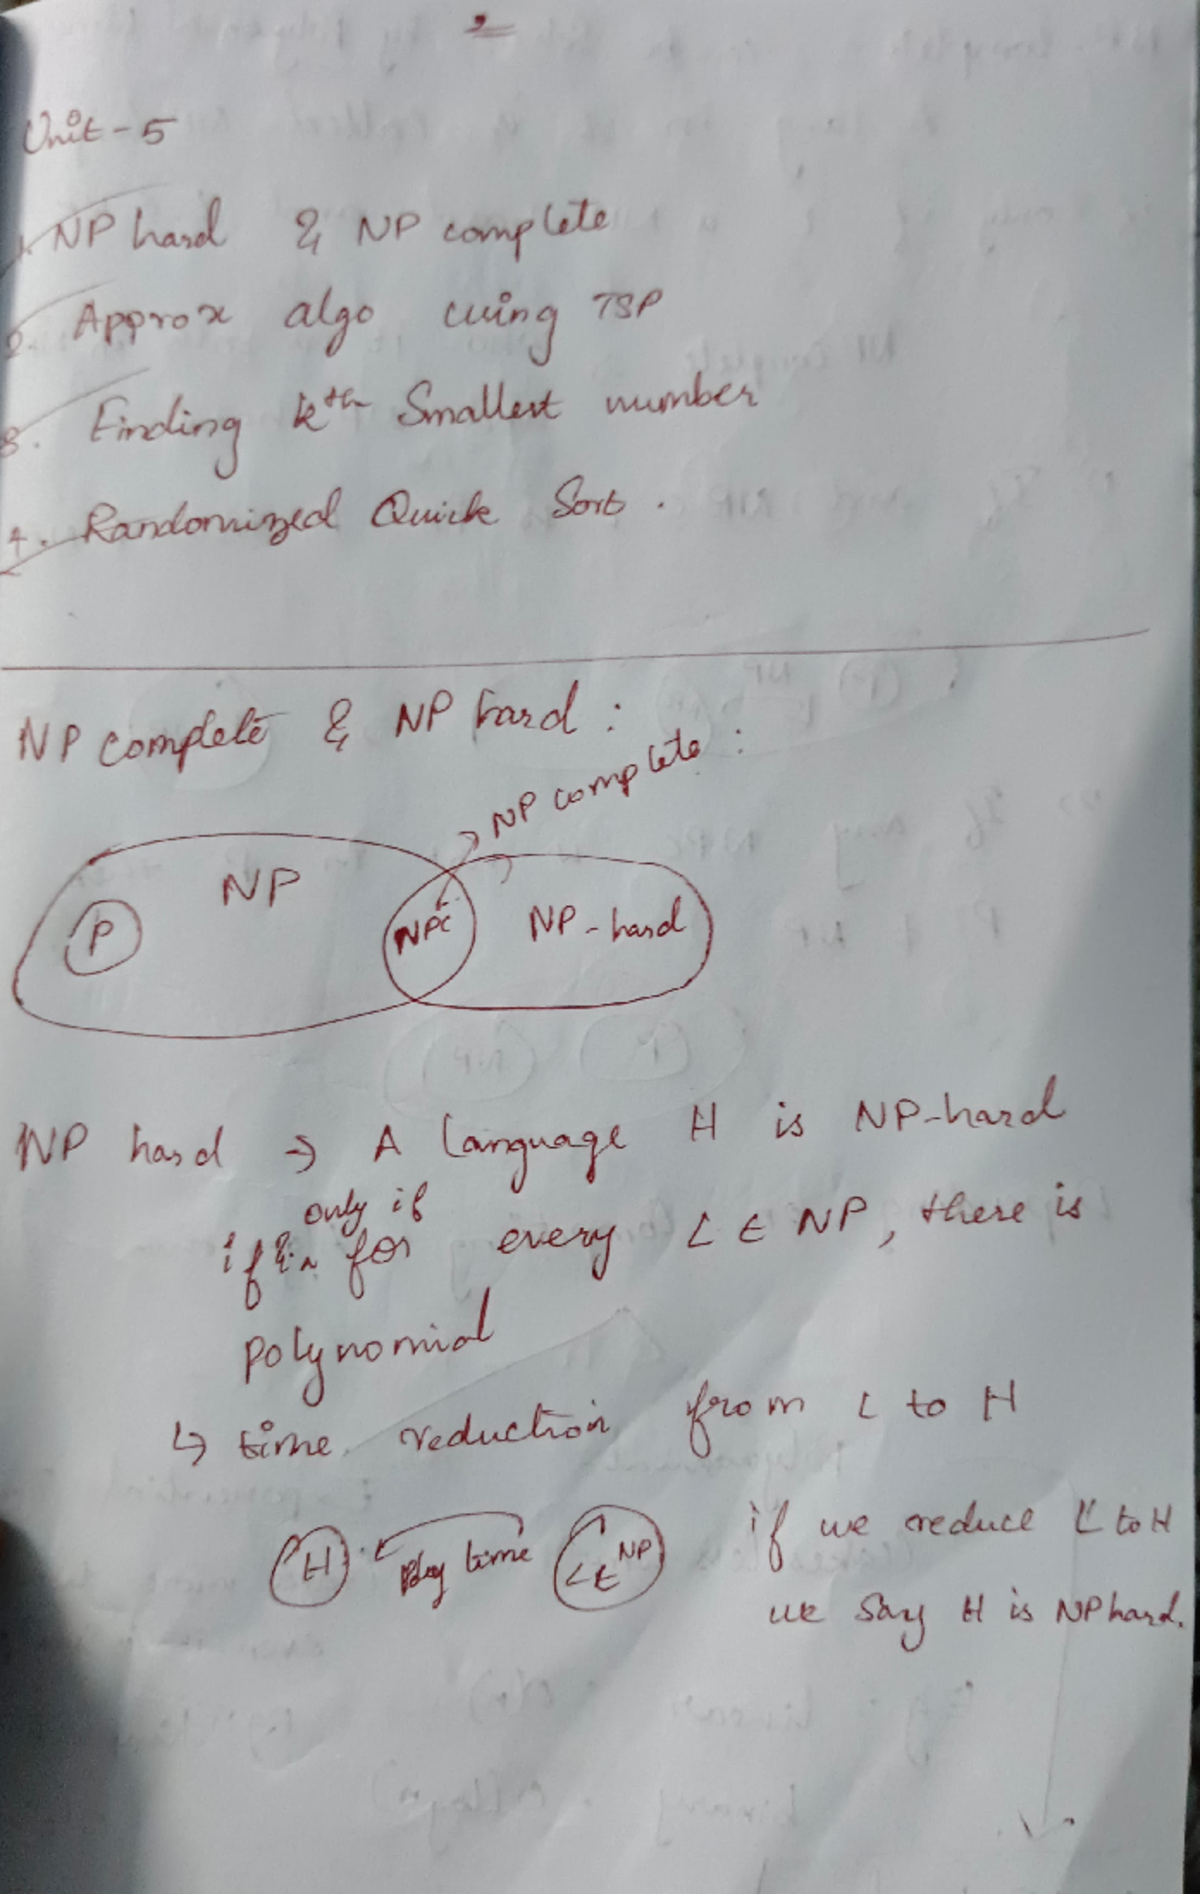 Unit - 5
1. NP hard & NP complete
2. Approx algo using TSP
3. Finding kth Smallest number
4. Randomized Quick Sort .
NP complete & NP hard :
NP complete :
NP
P
NPC
NP - hard
NP hard → A language H is NP-hard
only if
if & for every L ∈ NP, there is
polynomial
↳ time reduction from L to H
H Poly time L ∈ NP
if we reduce L to H
we say H is NP hard.